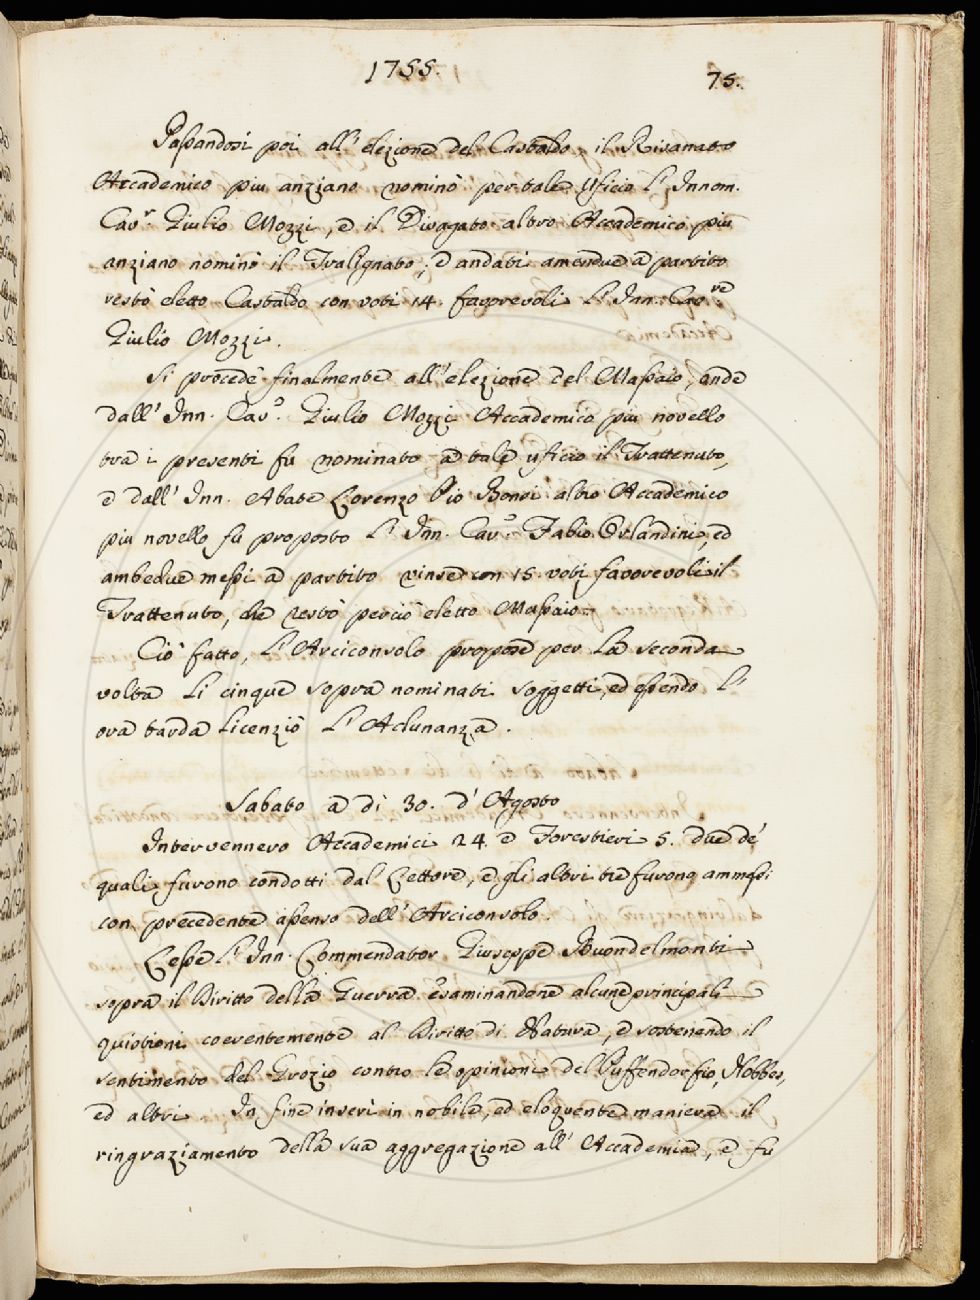 1755.
75.
Passandosi poi all' elezione del Castaldo il Rivanato
Accademico piu anziano nominò per tale Uficio l' Innom.
Cav.r Giulio Mozzi, e il Divagato altro Accademico piu
anziano nominò il Tralignato, e andati amendue a partito
restò eletto Castaldo con voti 14. favorevoli l' Inn. Cav.re
Giulio Mozzi.
Si procedè finalmente all' elezione del Massaio, onde
dall' Inn. Cav.o Giulio Mozzi Accademico piu novello
tra i presenti fu nominato a tale uficio il Trattenuto,
e dall' Inn. Abate Lorenzo Pio Bonsi altro Accademico
piu novello fu proposto l' Inn. Cav.o Fabio Orlandini, ed
ambedue messi a partito vinse con 15. voti favorevoli il
Trattenuto, che restò perciò eletto Massaio.
Ciò fatto, l' Arciconsolo propose per la seconda
volta li cinque sopra nominati soggetti, ed essendo l'
ora tarda licenziò l' Adunanza.
Sabato a dì 30. d' Agosto
Intervennero Accademici 24. e Forestieri 5. due de'
quali furono condotti dal Lettore, e gli altri tre furono ammessi
con precedente assenso dell' Arciconsolo.
Lesse l' Inn. Commendator Giuseppe Buondelmonti
sopra il Diritto della Guerra esaminandone alcune principali
quistioni coerentemente al Diritto di Natura, e sostenendo il
sentimento del Grozio contro le opinioni del Puffendorfio, Hobbes,
ed altri. In fine inserì in nobile, ed eloquente maniera il
ringraziamento della sua aggregazione all' Accademia, e fu